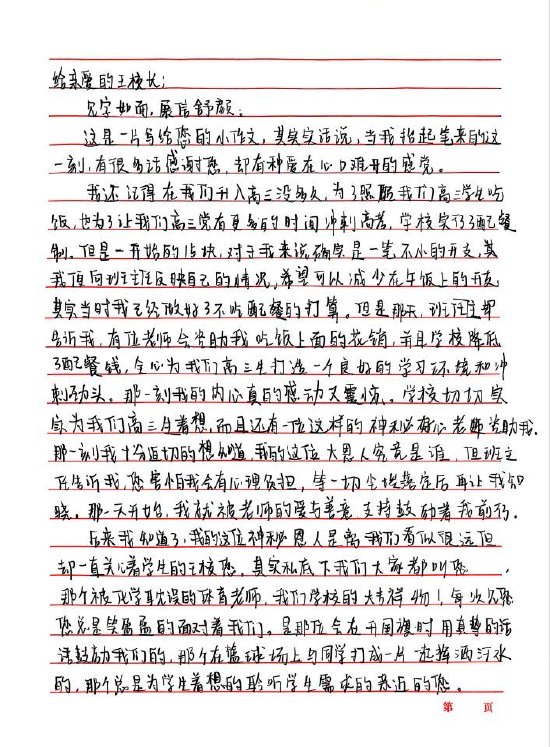 给亲爱的王校长：
见字如面，展信舒颜。
这是一片写给您的小作文，其实实话说，当我抬起笔来的这
一刻，有很多话感谢您，却有种爱在心口难开的感觉。
我还记得在我们升入高三没多久，为了照顾我们高三学生吃
饭，也为了让我们高三党有更多的时间冲刺高考，学校实行了配餐
制。但是一开始的15块，对于我来说确实是一笔不小的开支，其
我便向班主任反映自己的情况，希望可以减少在午饭上的开支，
其实当时我已经做好了不吃配餐的打算。但是那天，班主任却
告诉我，有位老师会资助我吃饭上面的花销，并且学校降低
了配餐钱，全心为我们高三生打造一个良好的学习环境和冲
刺劲头。那一刻我的内心真的感动又震惊。学校切切实
实为我们高三生着想，而且还有一位这样的神秘好心老师资助我。
那一刻我十分迫切的想知道我的这位大恩人究竟是谁，但班主
任告诉我，您害怕我会有心理负担，等一切尘埃落定后再让我知
晓。那一天开始，我就被老师的爱与善意支持鼓励着我前行。
后来我知道了，我的这位神秘恩人是离我们看似很远但
却一直关心着学生的王校您。其实私底下我们大家都叫您
那个被化学耽误的体育老师，我们学校的大吉祥物！每次见您
您总是笑盈盈的面对着我们。是那位会在开国旗时用真挚的话
语鼓励我们的，那个在篮球场上与同学打成一片一起挥洒汗水
的，那个总是为学生着想的聆听学生需求的亲近的您。
第 页